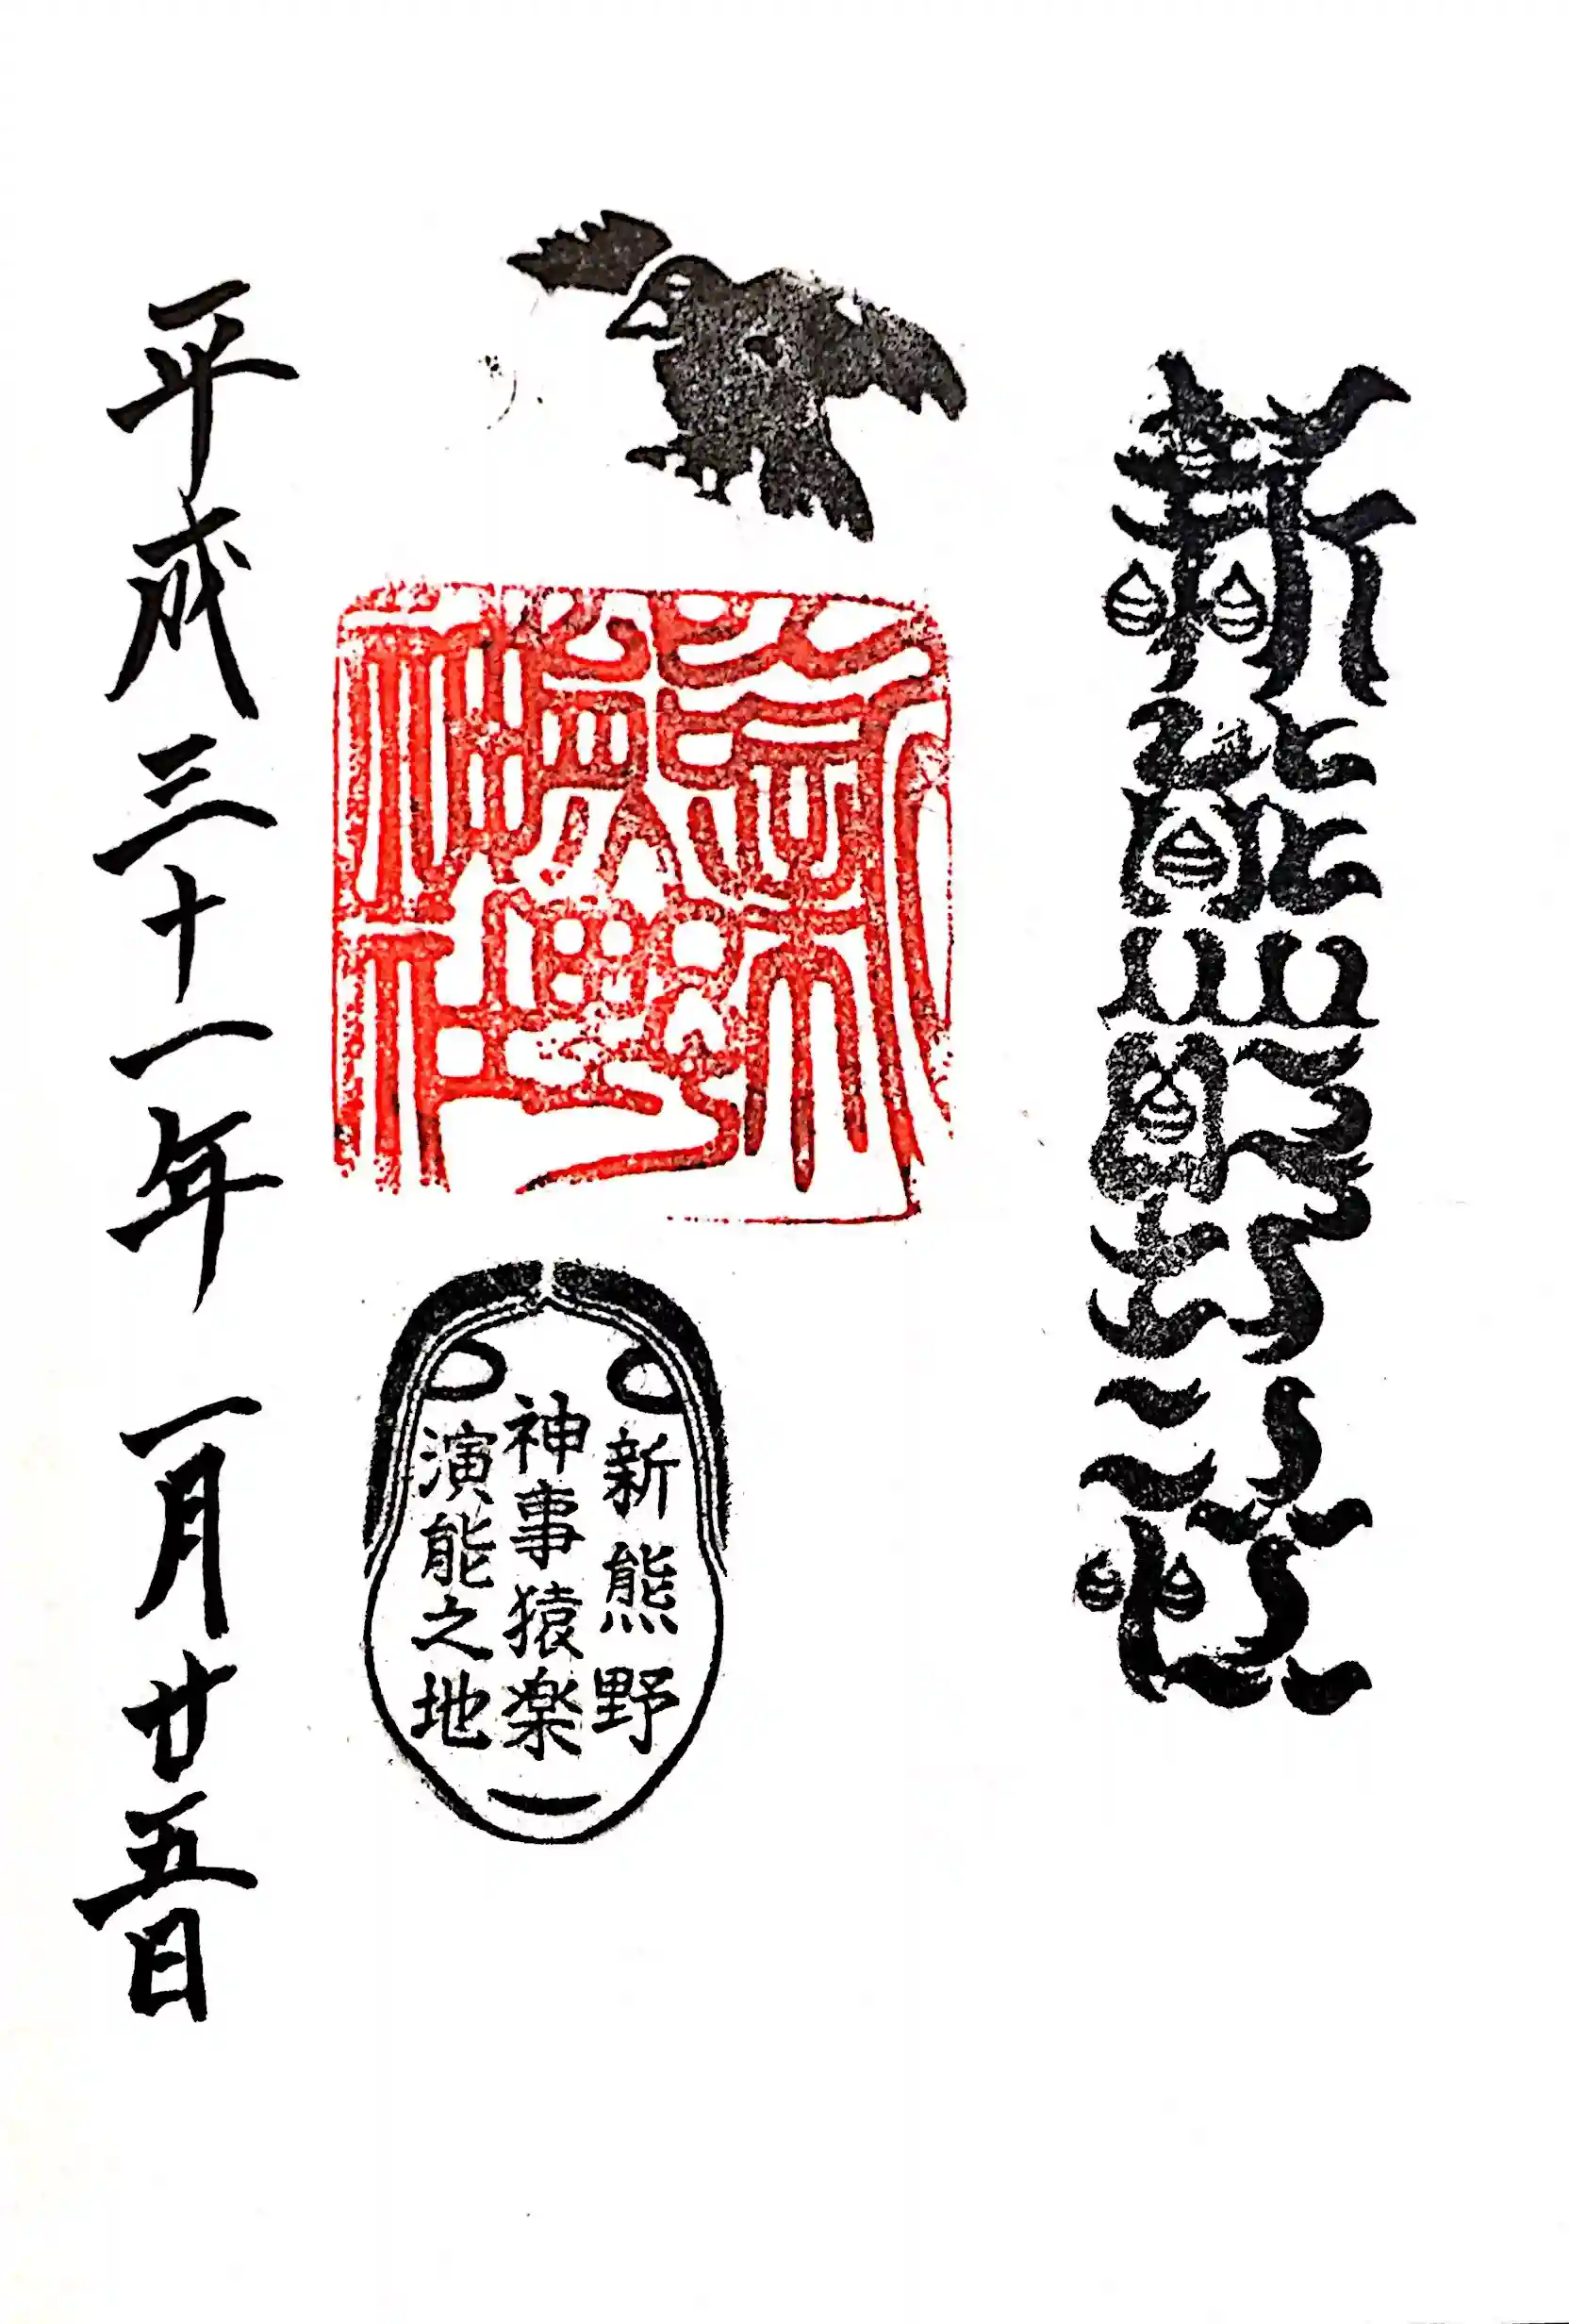 新熊野社
新熊野神社
新熊野
神事猿楽
演能之地
平成三十一年 一月廿五日